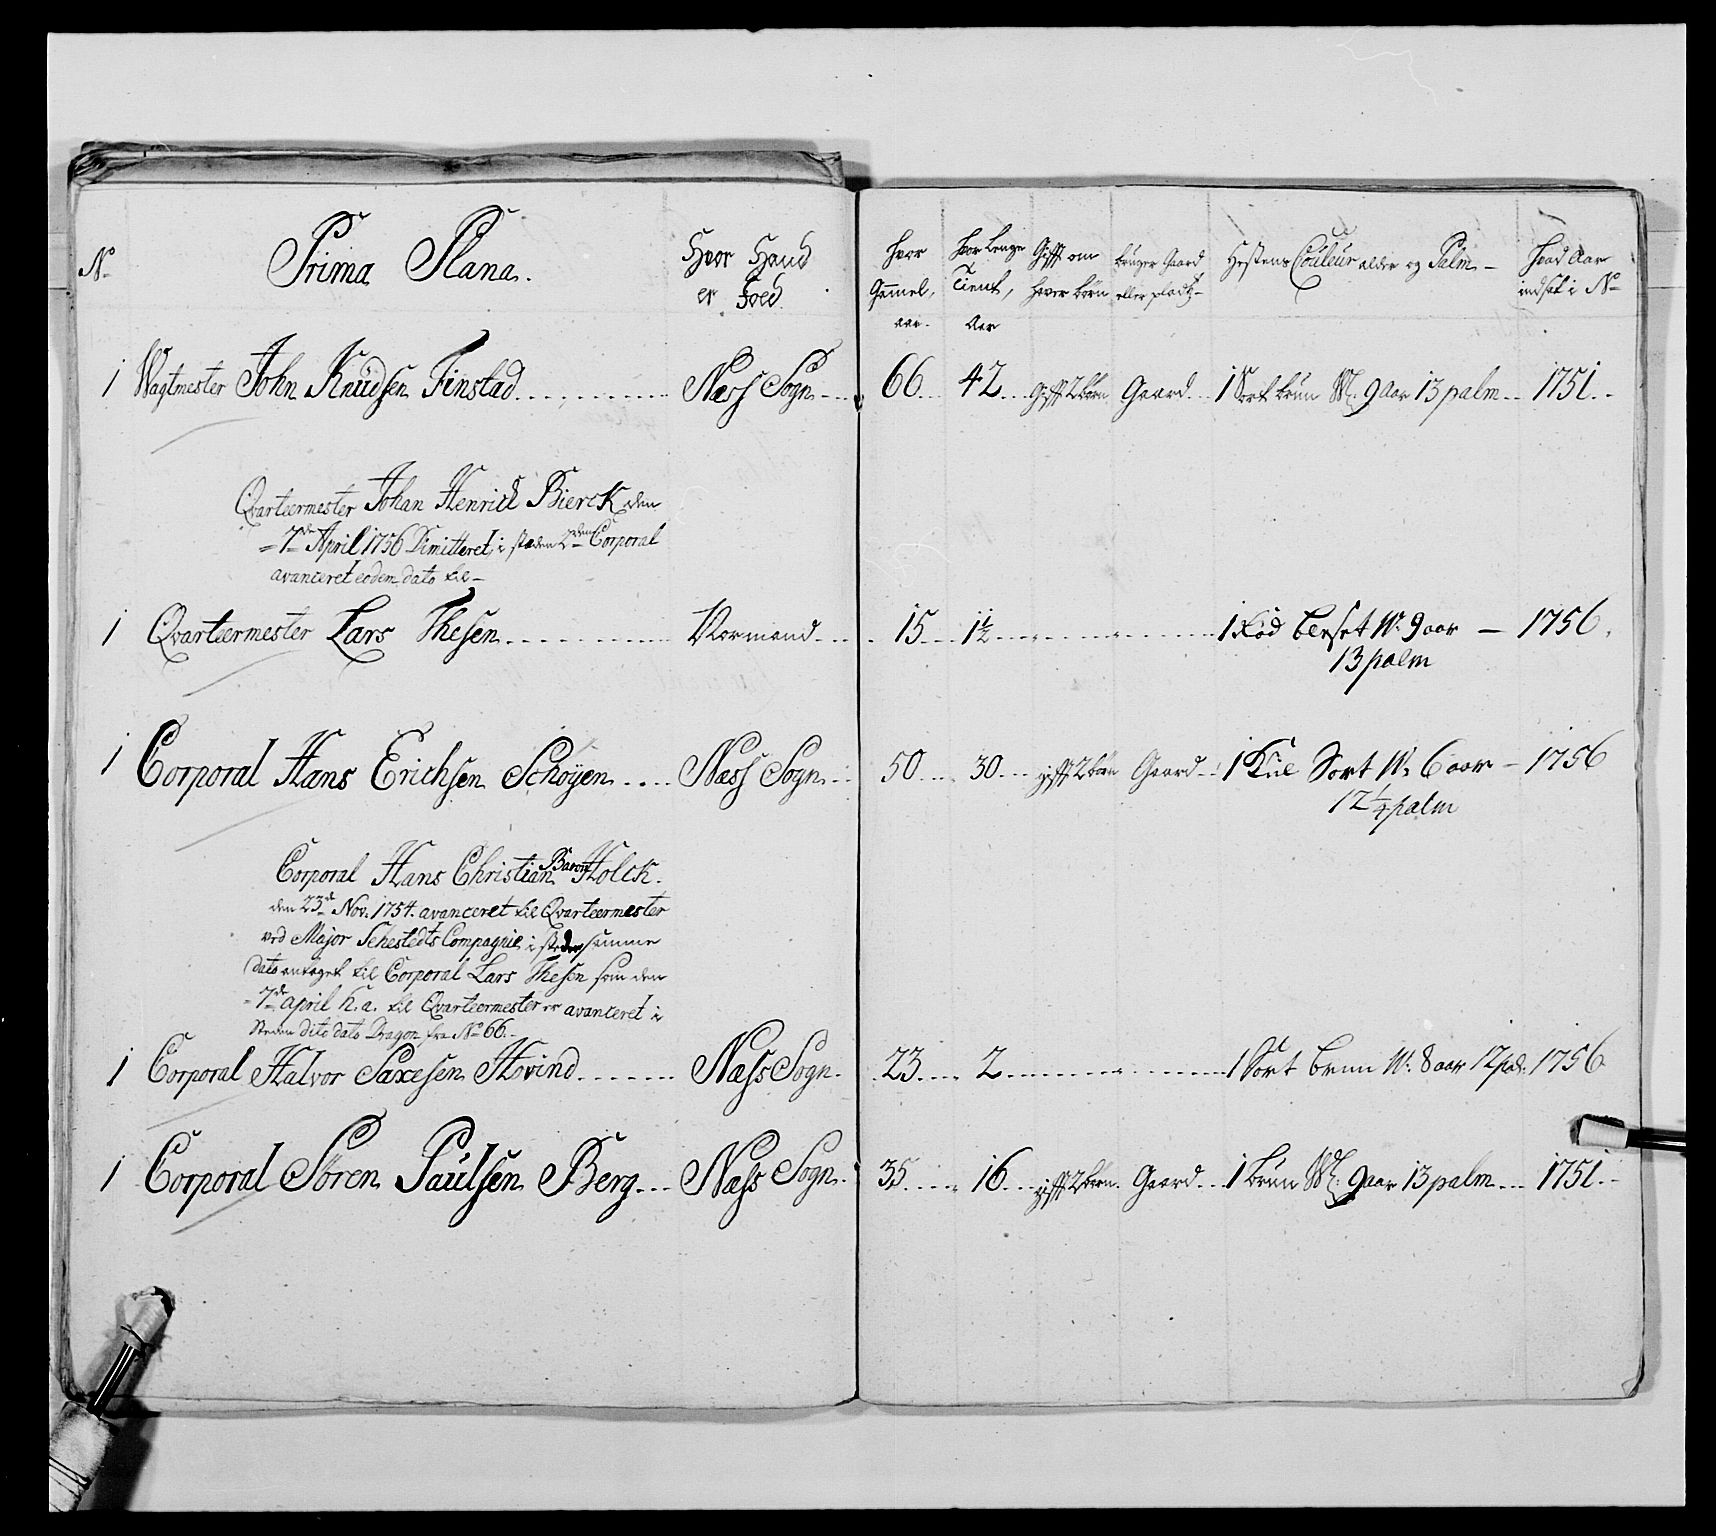 No Prima Plana. Hvor Hand hvor hvor lenge Gift om bruger Gaard Hestens Couleur alder og Palm hvad Aar
er Föed. Gammel, Tient, haver börn eller pladtz indsat i No
aar. Aar
1 Wagtmester John Knüdsen Finstad Næss Sogn 66 42 Gift 2 börn Gaard 1 Sort brun W. 9 aar 13 palm 1751.
Qvarteermester Johan Henrich Bierck den
7de April 1756 Dimitteret, i steden 2den Corporal
avanceret eodem dato til
1 Qvarteermester Lars Thesen Normand 15 1½ 1 Röd blesset W. 9 aar 1756.
13 palm
1 Corporal Hans Erichsen Schöyen Næss Sogn 50 30 gift 2 börn Gaard 1 Kul Sort W. 6 aar 1756
12½ palm
Corporal Hans Christian Baron Holck.
den 23de Nov. 1754. avanceret til Qvarteermester
ved Major Sehestedts Compagnie, i steden samme
dato antaget til Corporal Lars Thesen som den
7de april h.a. til Qvarteermester er avanceret i
Steden dito dato Dragon fra No 66.
1 Corporal Halvor Saxesen Hovind Næss Sogn 23 2 1 Sort brun W. 8 aar 12 pal. 1756
1 Corporal Sören Paulsen Berg Næss Sogn. 35 16 gift 2 börn Gaard 1 brun W. 9 aar 13 palm 1751